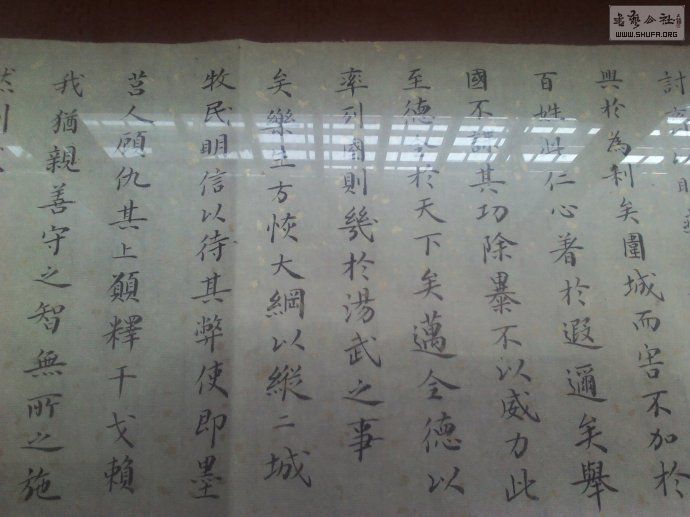 書藝公社
WWW.SHUFA.ORG
討齊以明燕
興於為利矣圍城而害不加於
百姓此仁心著於遐邇矣舉
國不謀其功除暴不以威力此
至德全於天下矣邁全德以
率列國則幾於湯武之事
矣樂生方恢大綱以縱二城
牧民明信以待其弊使即墨
莒人顧仇其上願釋干戈賴
我猶親善守之智無所之施
然則